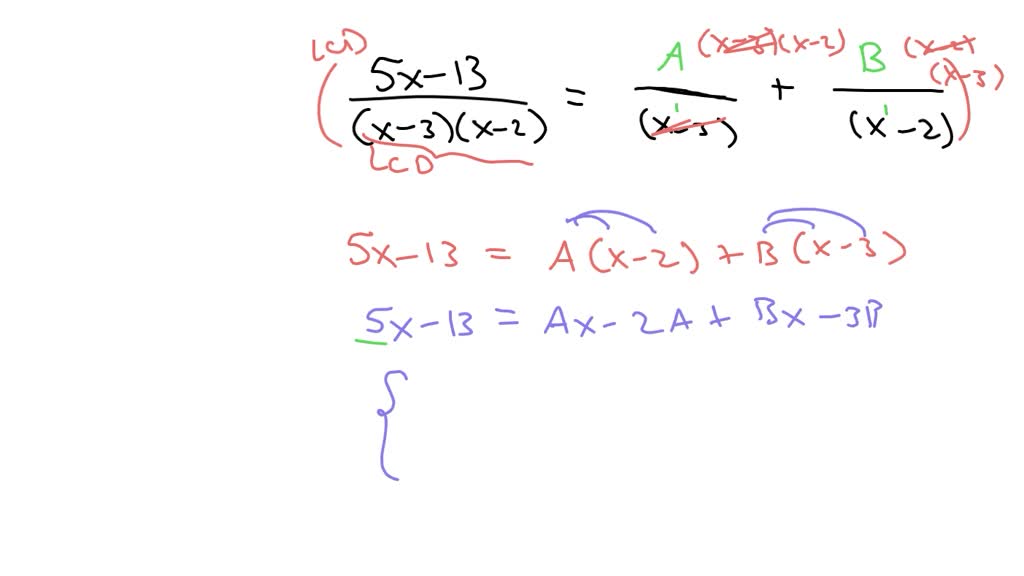 (LCD) 5x-13 / (x-3)(x-2) = A (x-3)(x-2) / (x-3) + B (x-2)(x-3) / (x-2)
LCD
5x-13 = A(x-2) + B(x-3)
5x-13 = Ax-2A + Bx-3B
{